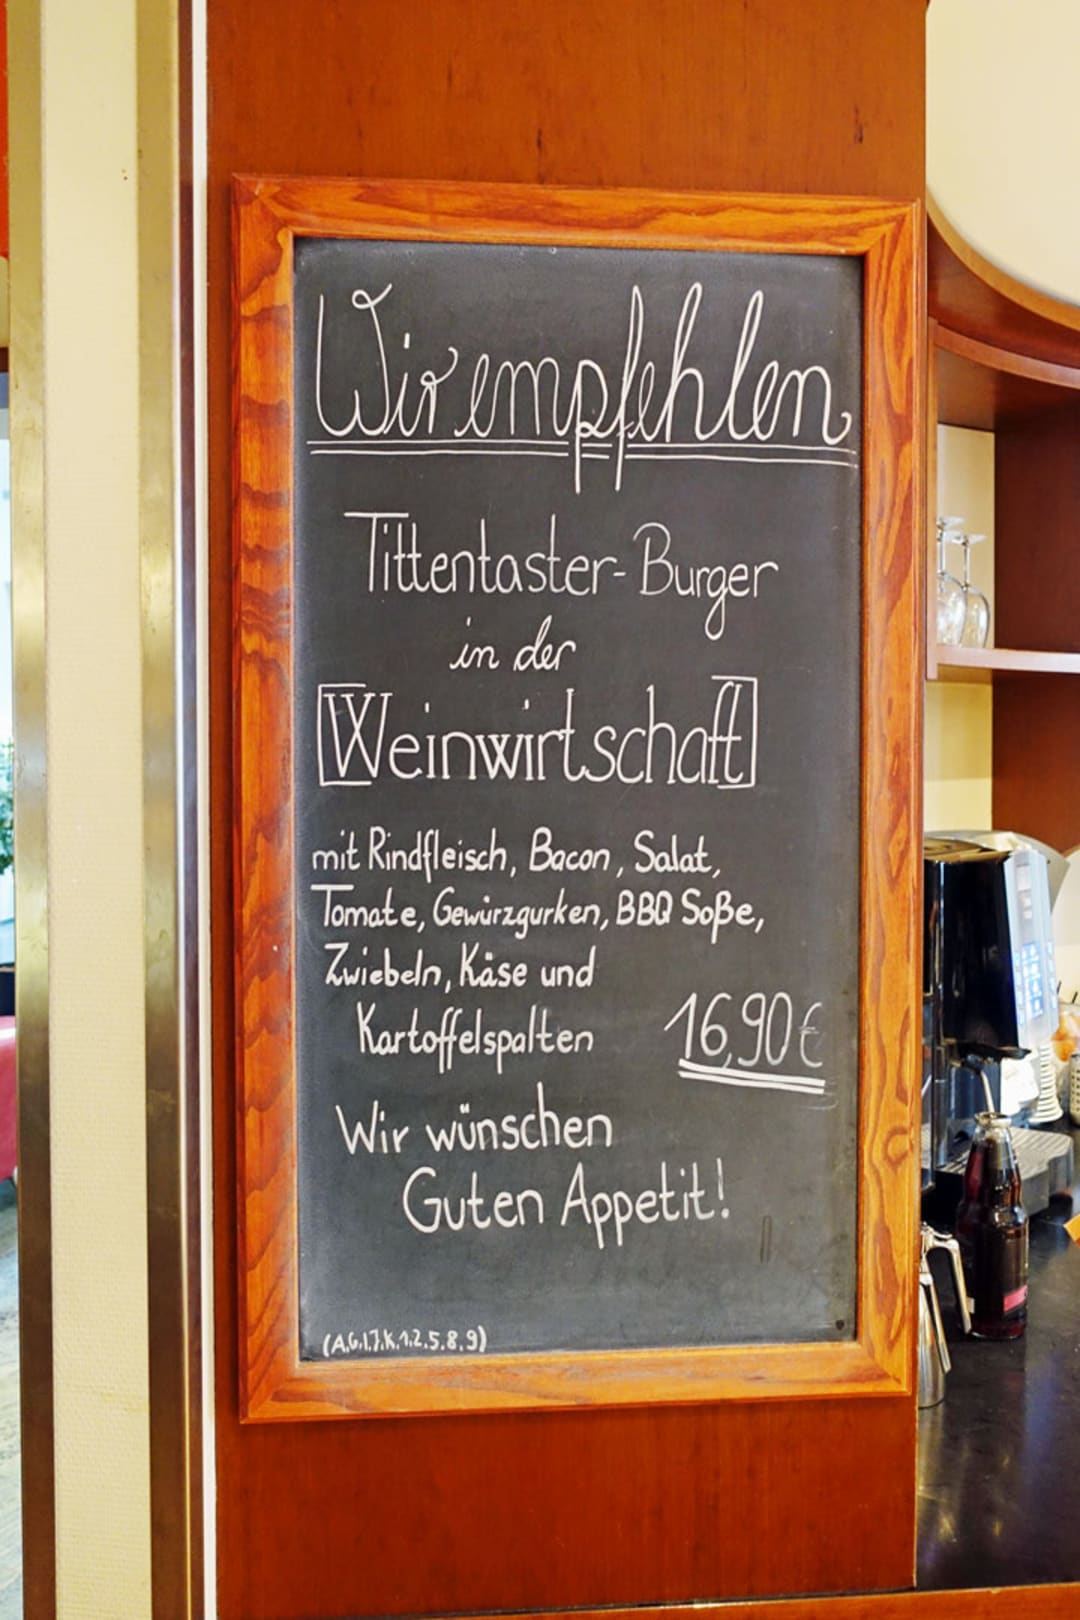 Wir empfehlen
Tittentaster-Burger
in der
Weinwirtschaft
mit Rindfleisch, Bacon, Salat,
Tomate, Gewürzgurken, BBQ Soße,
Zwiebeln, Käse und
Kartoffelspalten 16,90€
Wir wünschen
Guten Appetit!
(A,G,I,J,K,1,2,5,8,9)